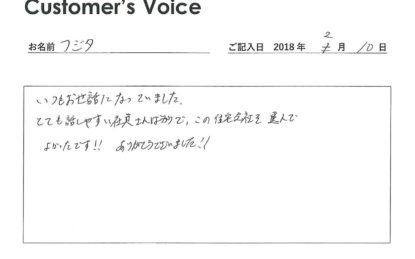 Customer's Voice
お名前 フジタ ご記入日 2018 年 2 月 10 日
いつもお世話になっていました。
とても話しやすい社員さんばかりで、この住宅会社を選んで
よかったです!! ありがとうございました!!